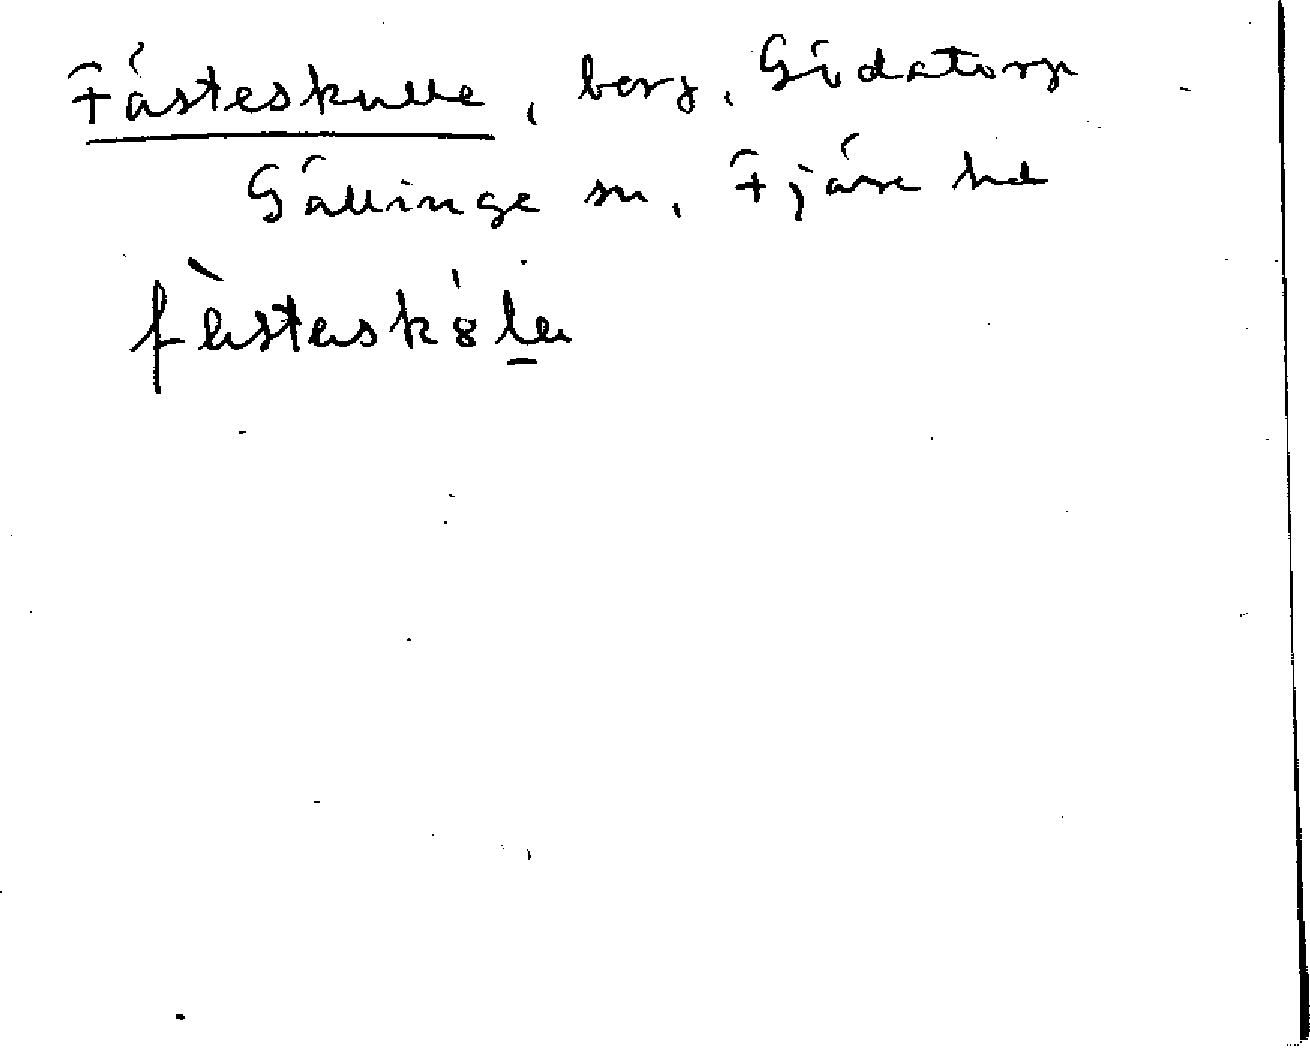 Fästeskulle, berg, Gödatorp
Gällinge sn, Fjäre hd
fæ̀stæskȣ́læ